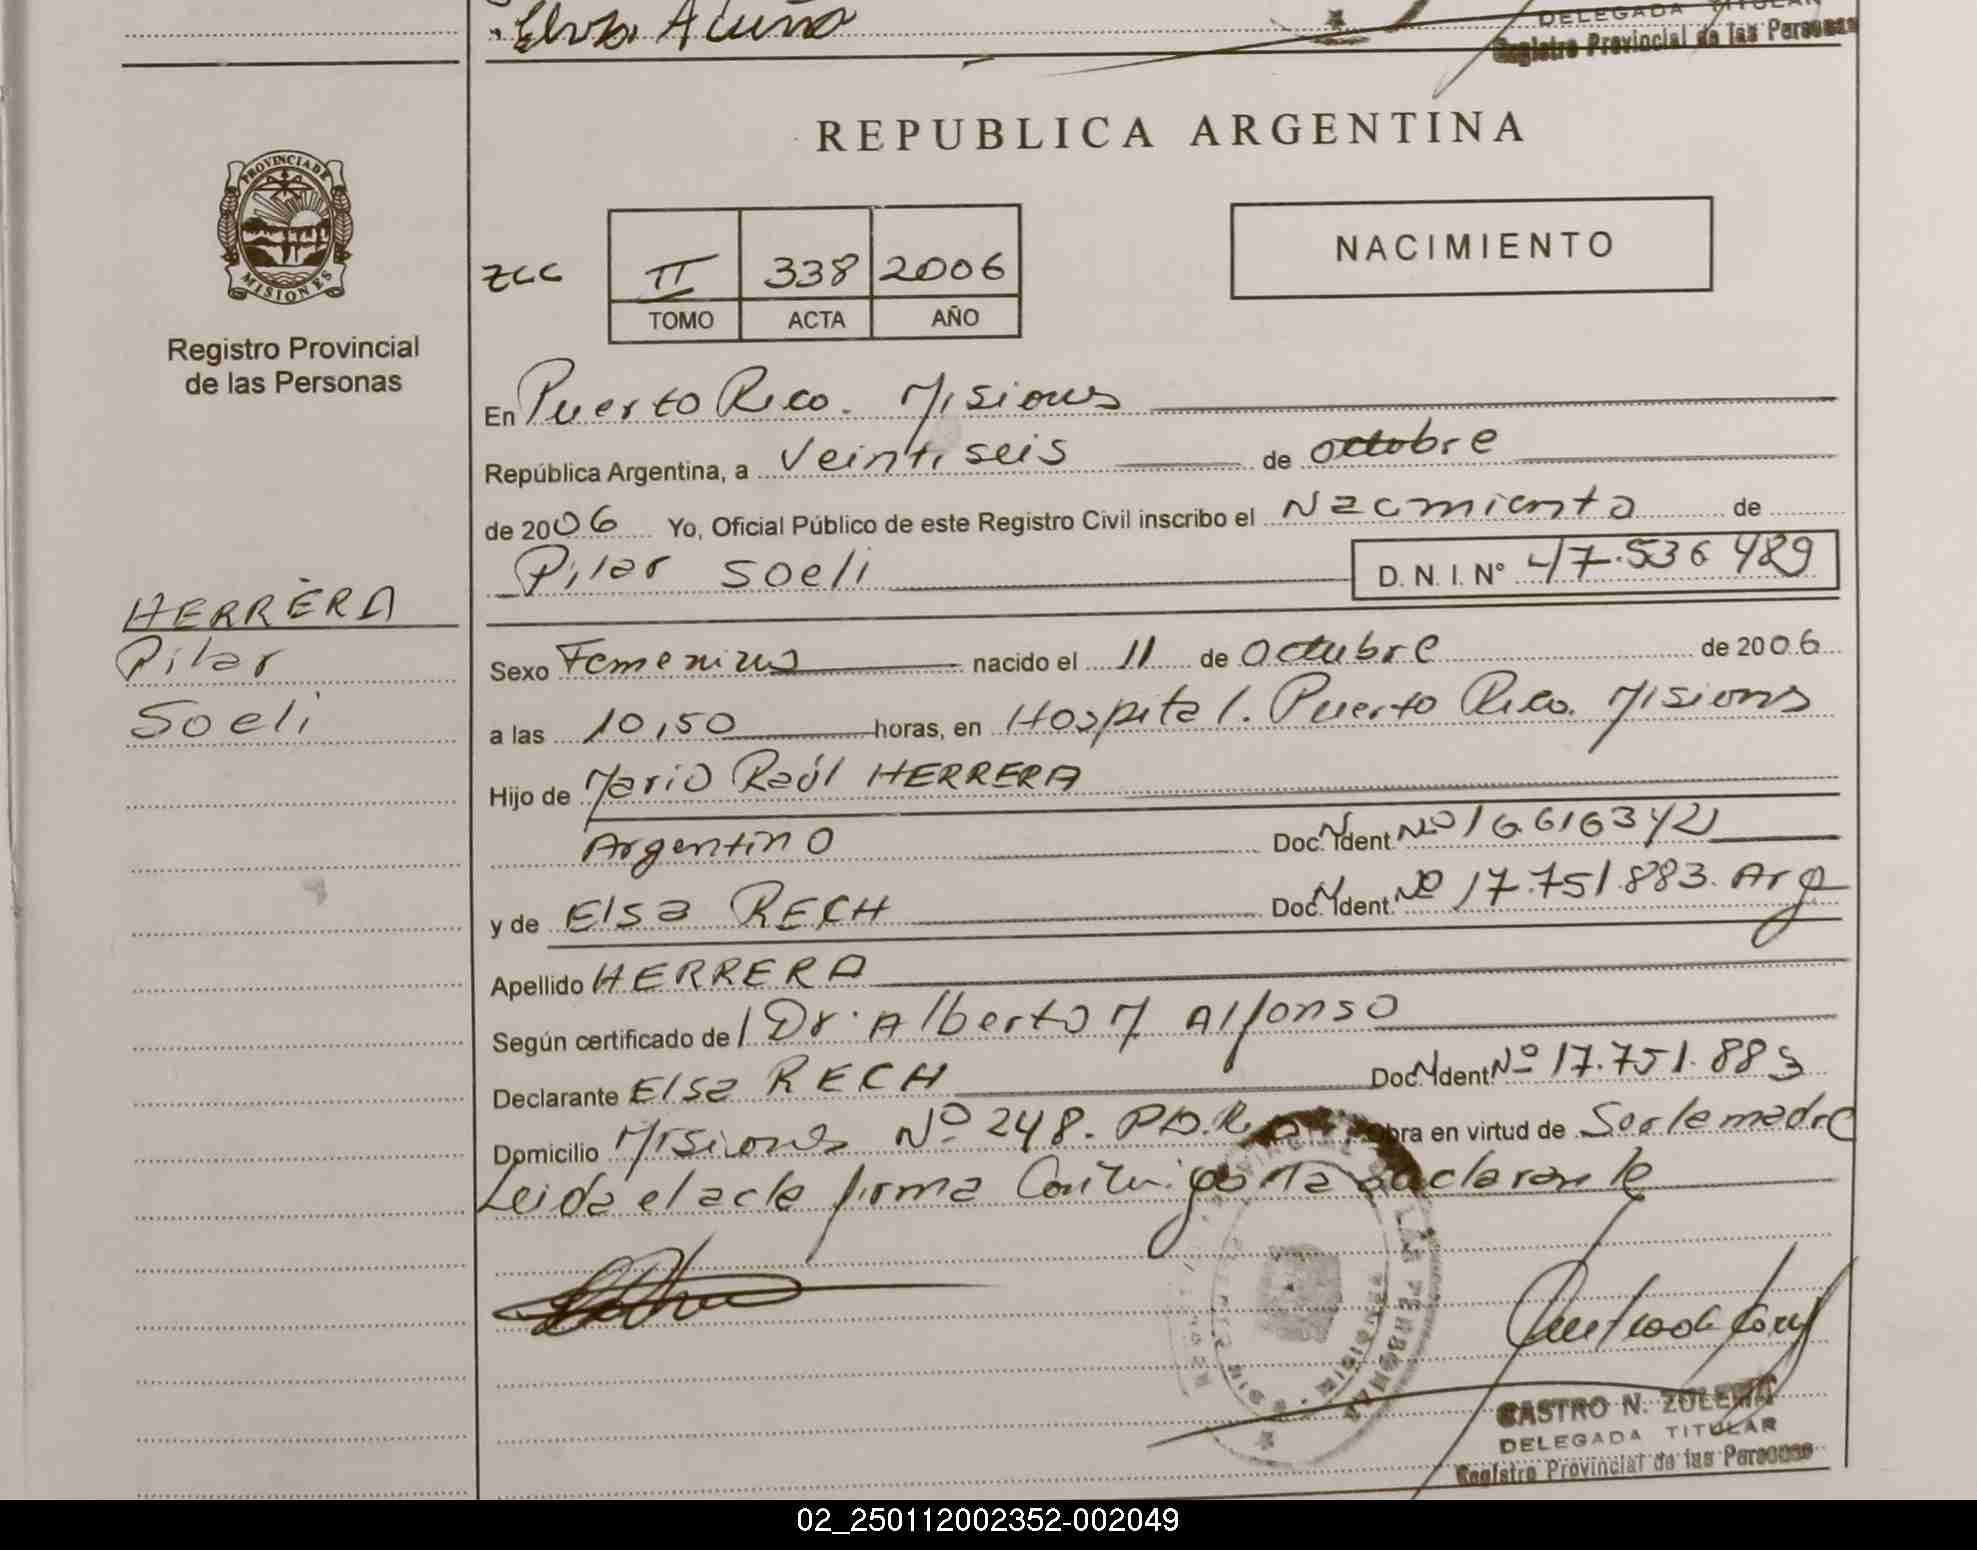 Elva Acuña
DELEGADA TITULAR
Registro Provincial de las Personas
REPUBLICA ARGENTINA
PROVINCIA DE
MISIONES
Registro Provincial
de las Personas
NACIMIENTO
ZCC II 338 2006
TOMO ACTA AÑO
En Puerto Rico. Misiones
República Argentina, a Veintiseis de octubre
de 2006 Yo, Oficial Público de este Registro Civil inscribo el Nacimiento de
Pilar Soeli D. N. I. N° 47.536 489
HERRERA
Pilar
Soeli
Sexo Femenino nacido el 11 de Octubre de 2006
a las 10,50 horas, en Hospital. Puerto Rico. Misiones
Hijo de Mario Raúl HERRERA
Argentino Doc. Ident. Nº 16.616342
y de Elsa RECH Doc. Ident. Nº 17.751.883. Arg
Apellido HERRERA
Según certificado de Dr. Alberto M Alfonso
Declarante Elsa RECH Doc. Ident Nº 17.751.883
Domicilio Misiones Nº 248. Obra en virtud de Ser la madre
Leida el acta firma la declarante
CASTRO N. ZULEMA
DELEGADA TITULAR
Registro Provincial de las Personas
02_250112002352-002049